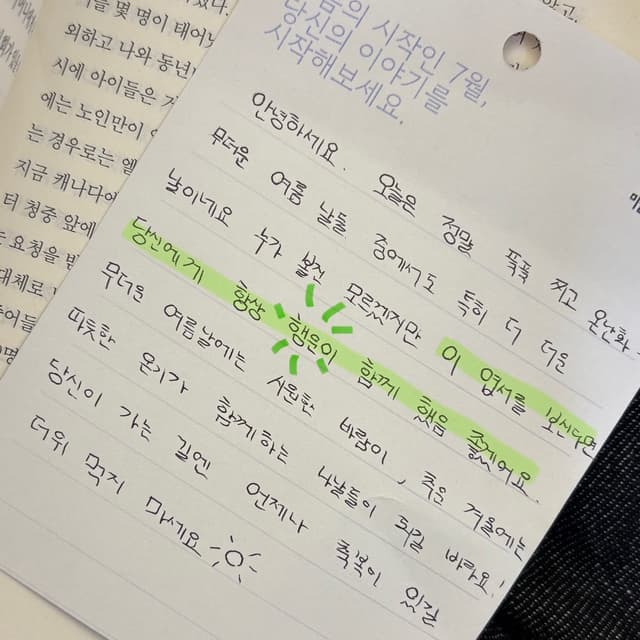 몇 명이 태어
외하고 나와 동년
시에 아이들은
에는 노인만이
는 경우로는
지금 캐나다에
터 청중 앞에
요청을
대체로
시작인 7월,
당신의 이야기를
시작해보세요.
안녕하세요. 오늘은 정말 푹푹 찌고 온난화
무더운 여름 날들 중에서도 특히 더 더운
날이네요 누가 볼진 모르겠지만 이 엽서를 보신다면
당신에게 항상 행운이 함께 했음 좋겠어요.
무더운 여름날에는 시원한 바람이, 추운 겨울에는
따뜻한 온기가 함께하는 나날들이 되길 바라요!
당신이 가는 길엔 언제나 축복이 있길
더위 먹지 마세요